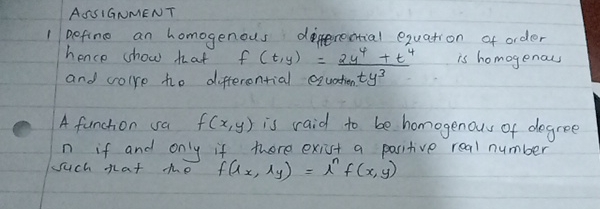 ASSIGNMENT
1 Define an homogenous differential equation of order
hence show that f(t,y) = 2y⁴ + t⁴ / ty³ is homogenous
and solve the differential equation
A function sa f(x,y) is said to be homogenous of degree
n if and only if there exist a positive real number
such that the f(λx, λy) = λⁿ f(x,y)